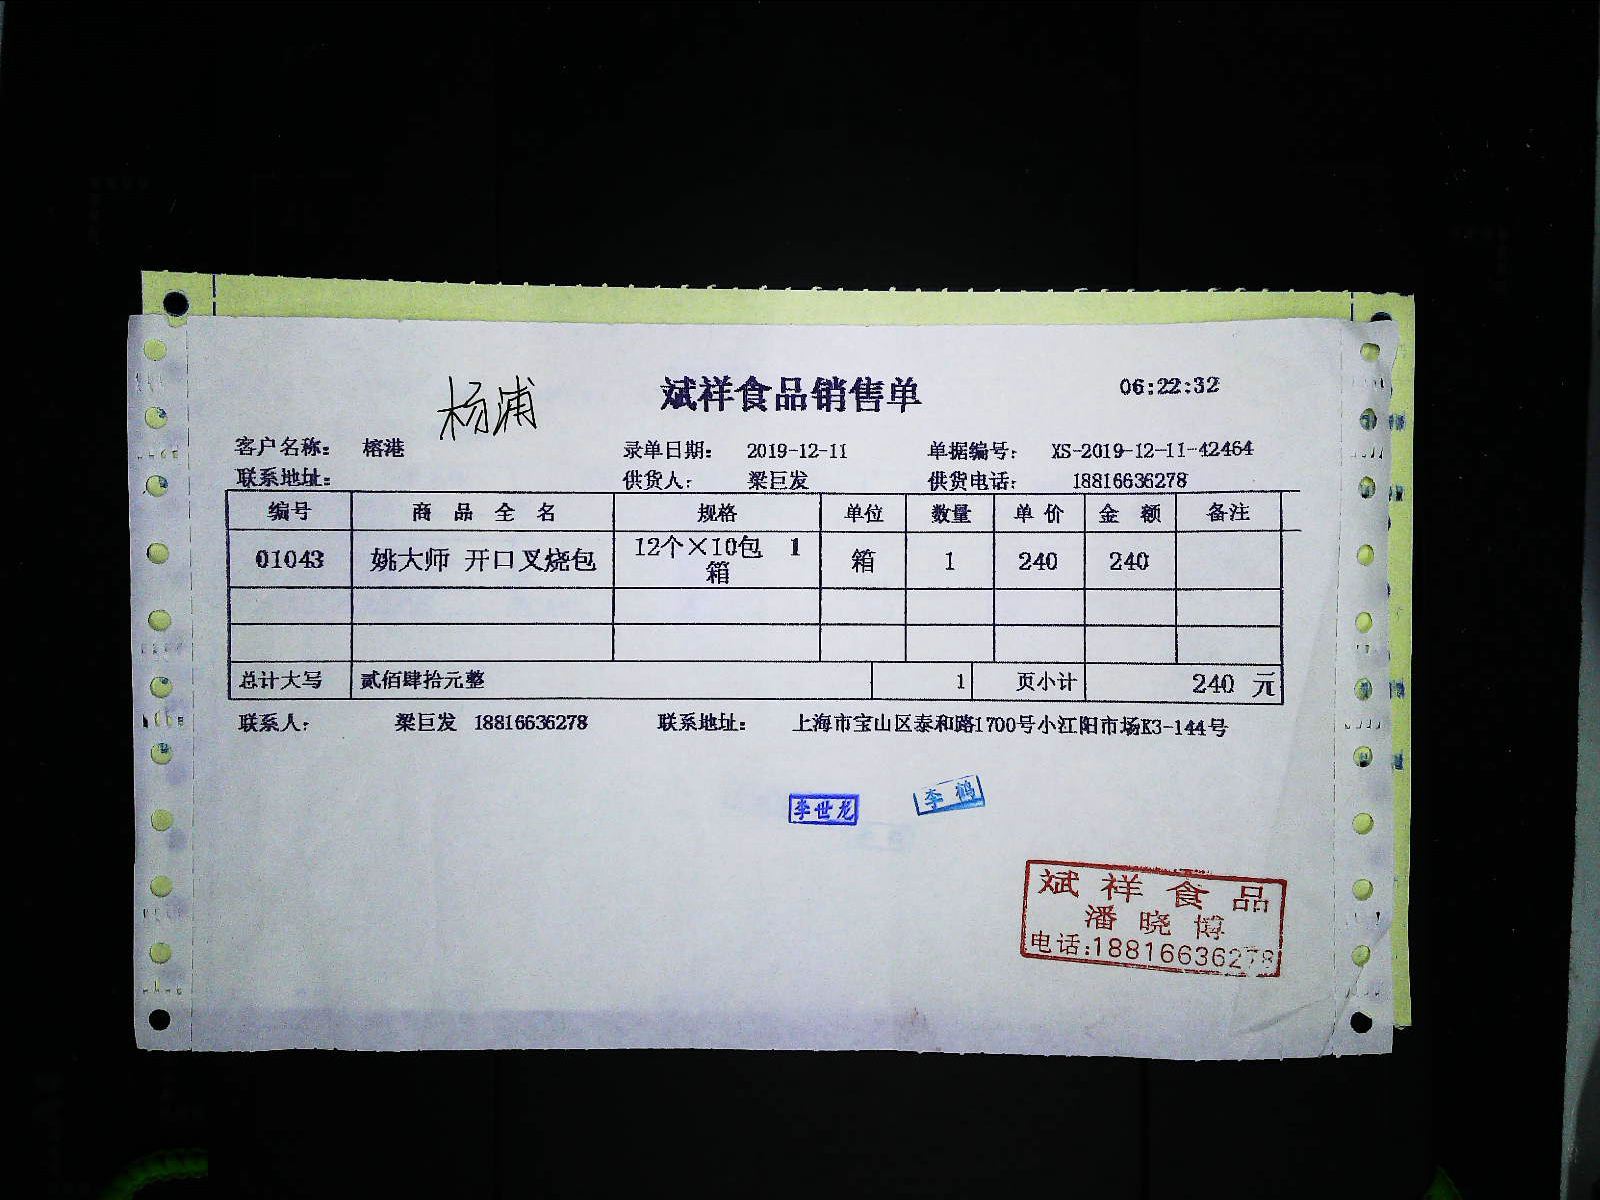 斌祥食品销售单 06:22:32
杨浦
客户名称： 榕港 录单日期： 2019-12-11 单据编号： XS-2019-12-11-42464
联系地址： 供货人： 梁巨发 供货电话： 18816636278
编号 商 品 全 名 规格 单位 数量 单 价 金 额 备注
01043 姚大师 开口叉烧包 12个×10包 1 箱 1 240 240
箱
总计大写 贰佰肆拾元整 1 页小计 240 元
联系人： 梁巨发 18816636278 联系地址： 上海市宝山区泰和路1700号小江阳市场K3-144号
李世龙 李鹤
斌祥食品
潘晓博
电话:18816636278